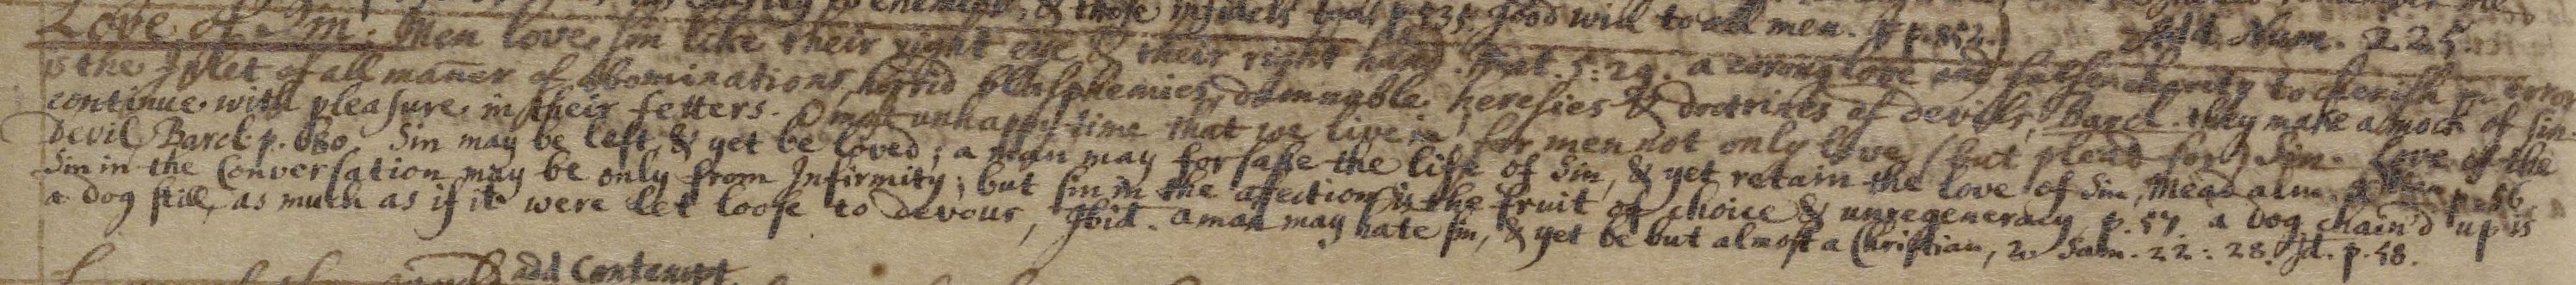 to enemies, & those infidels p. 535. good will to all men. p. 852.) Add Num. 225.
Love of Sin. Men love sin like their right eye & their right hand. Mat. 5: 29. a wrong love and false charity to cherish an error
is the Inlet of all maner of abominations, horrid blasphemies, damnable heresies & doctrines of devils, Barcl. they make a mock of sin
continue with pleasure in their fetters. O most unhappy time that we live in, for men not only love (but plead for) Sin. Love of the
Devil, Barcl. p. 680. Sin may be left & yet be loved; a man may forsake the life of Sin, & yet retain the love of Sin, Mead alm. p. 56
Sin in the Conversation may be only from Infirmity; but sin in the affection is the fruit of choice & unregeneracy p. 57. a dog chain'd up is
a dog still, as much as if it were let loose to devour, Ibid. a man may hate sin, & yet be but almost a Christian, 2 Sam. 22: 28. Id. p. 58.
add Contempt